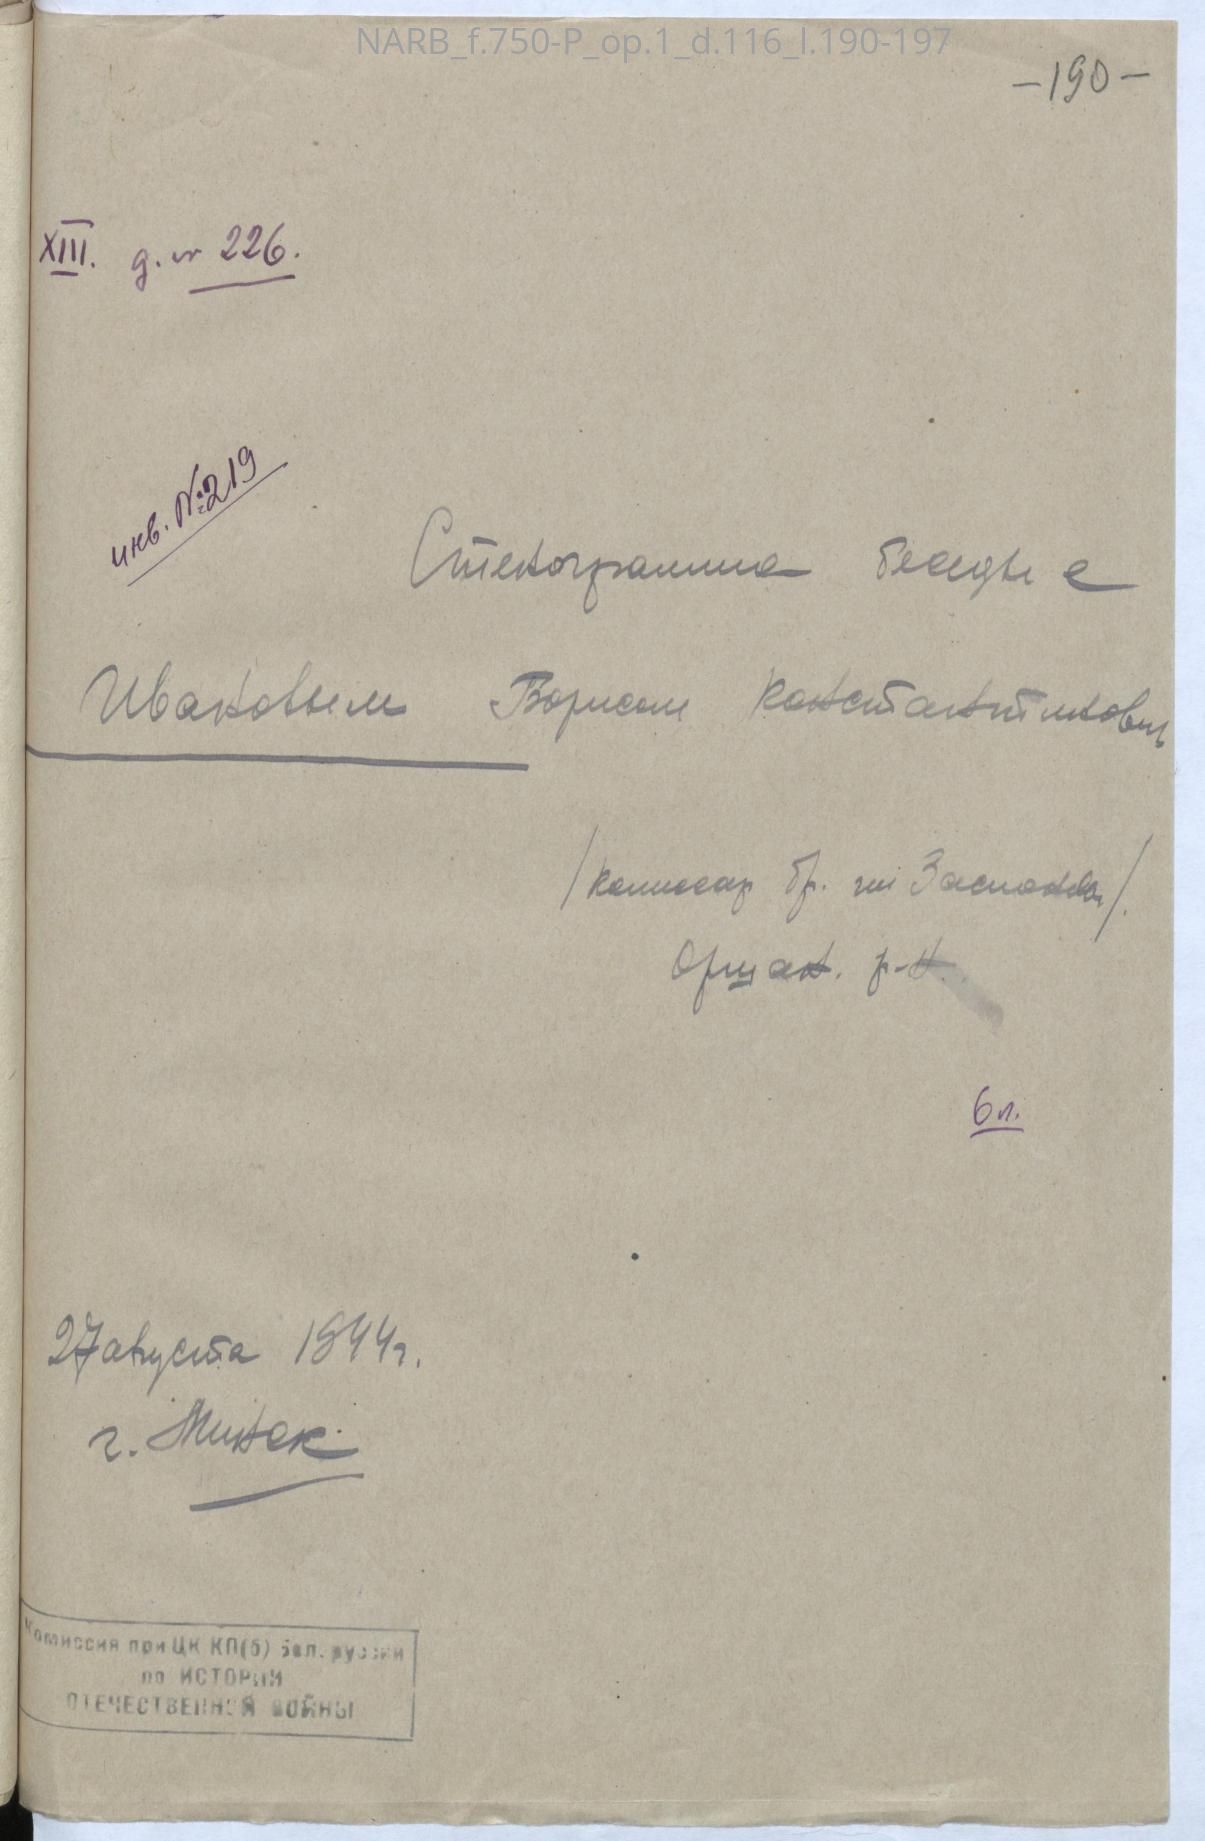 NARB_f.750-P_op.1_d.116_l.190-197
-190-
XIII. д. № 226.
инв. №219
Стенограмма беседы с
Ивановым Борисом Константинович
/комиссар бр. им Заслонова/.
Оршан. р-н.
6 л.
27 августа 1944 г.
г. Минск
Комиссия при ЦК КП(б) Бел.руссии
по ИСТОРИИ
ОТЕЧЕСТВЕННОЙ ВОЙНЫ